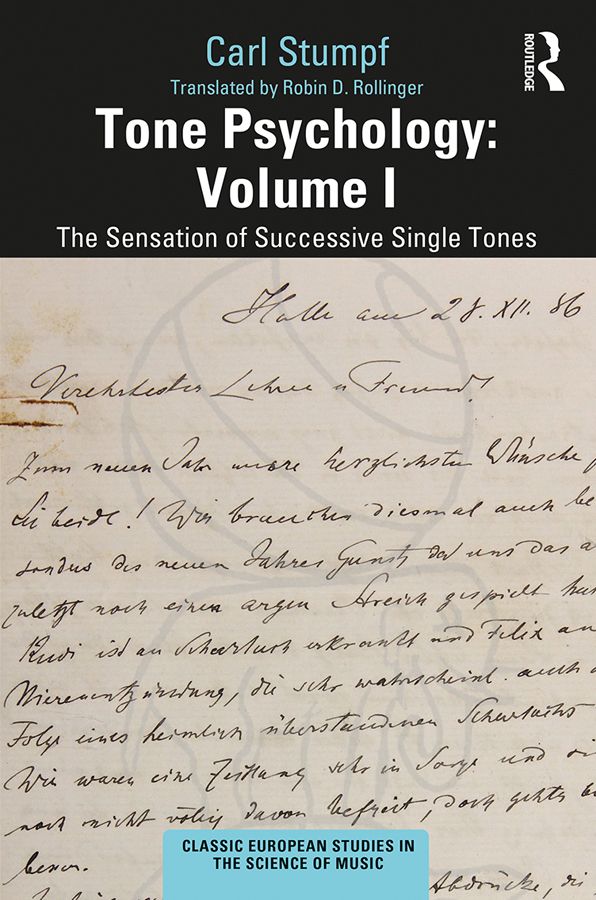 Carl Stumpf
ROUTLEDGE
Translated by Robin D. Rollinger
Tone Psychology:
Volume I
The Sensation of Successive Single Tones
Halle am 28. XII. 86
Verehrtester Lehrer u Freund!
Zum neuen Jahr unsere herzlichsten Wünsche
Sie beide! Wir brauchen diesmal auch be
sonders des neuen Jahres Gunst, da uns das a
zuletzt noch einen argen Streich gespielt
Rudi ist an Scharlach erkrankt und Felix an
Nierenentzündung, die sehr wahrscheinl. auch
Folge eines heimlich überstandenen Scharlachs
Wir waren eine Zeitlang sehr in Sorge und
noch nicht völlig davon befreit, doch gehts
besser.
Abdrücke, die
CLASSIC EUROPEAN STUDIES IN
THE SCIENCE OF MUSIC